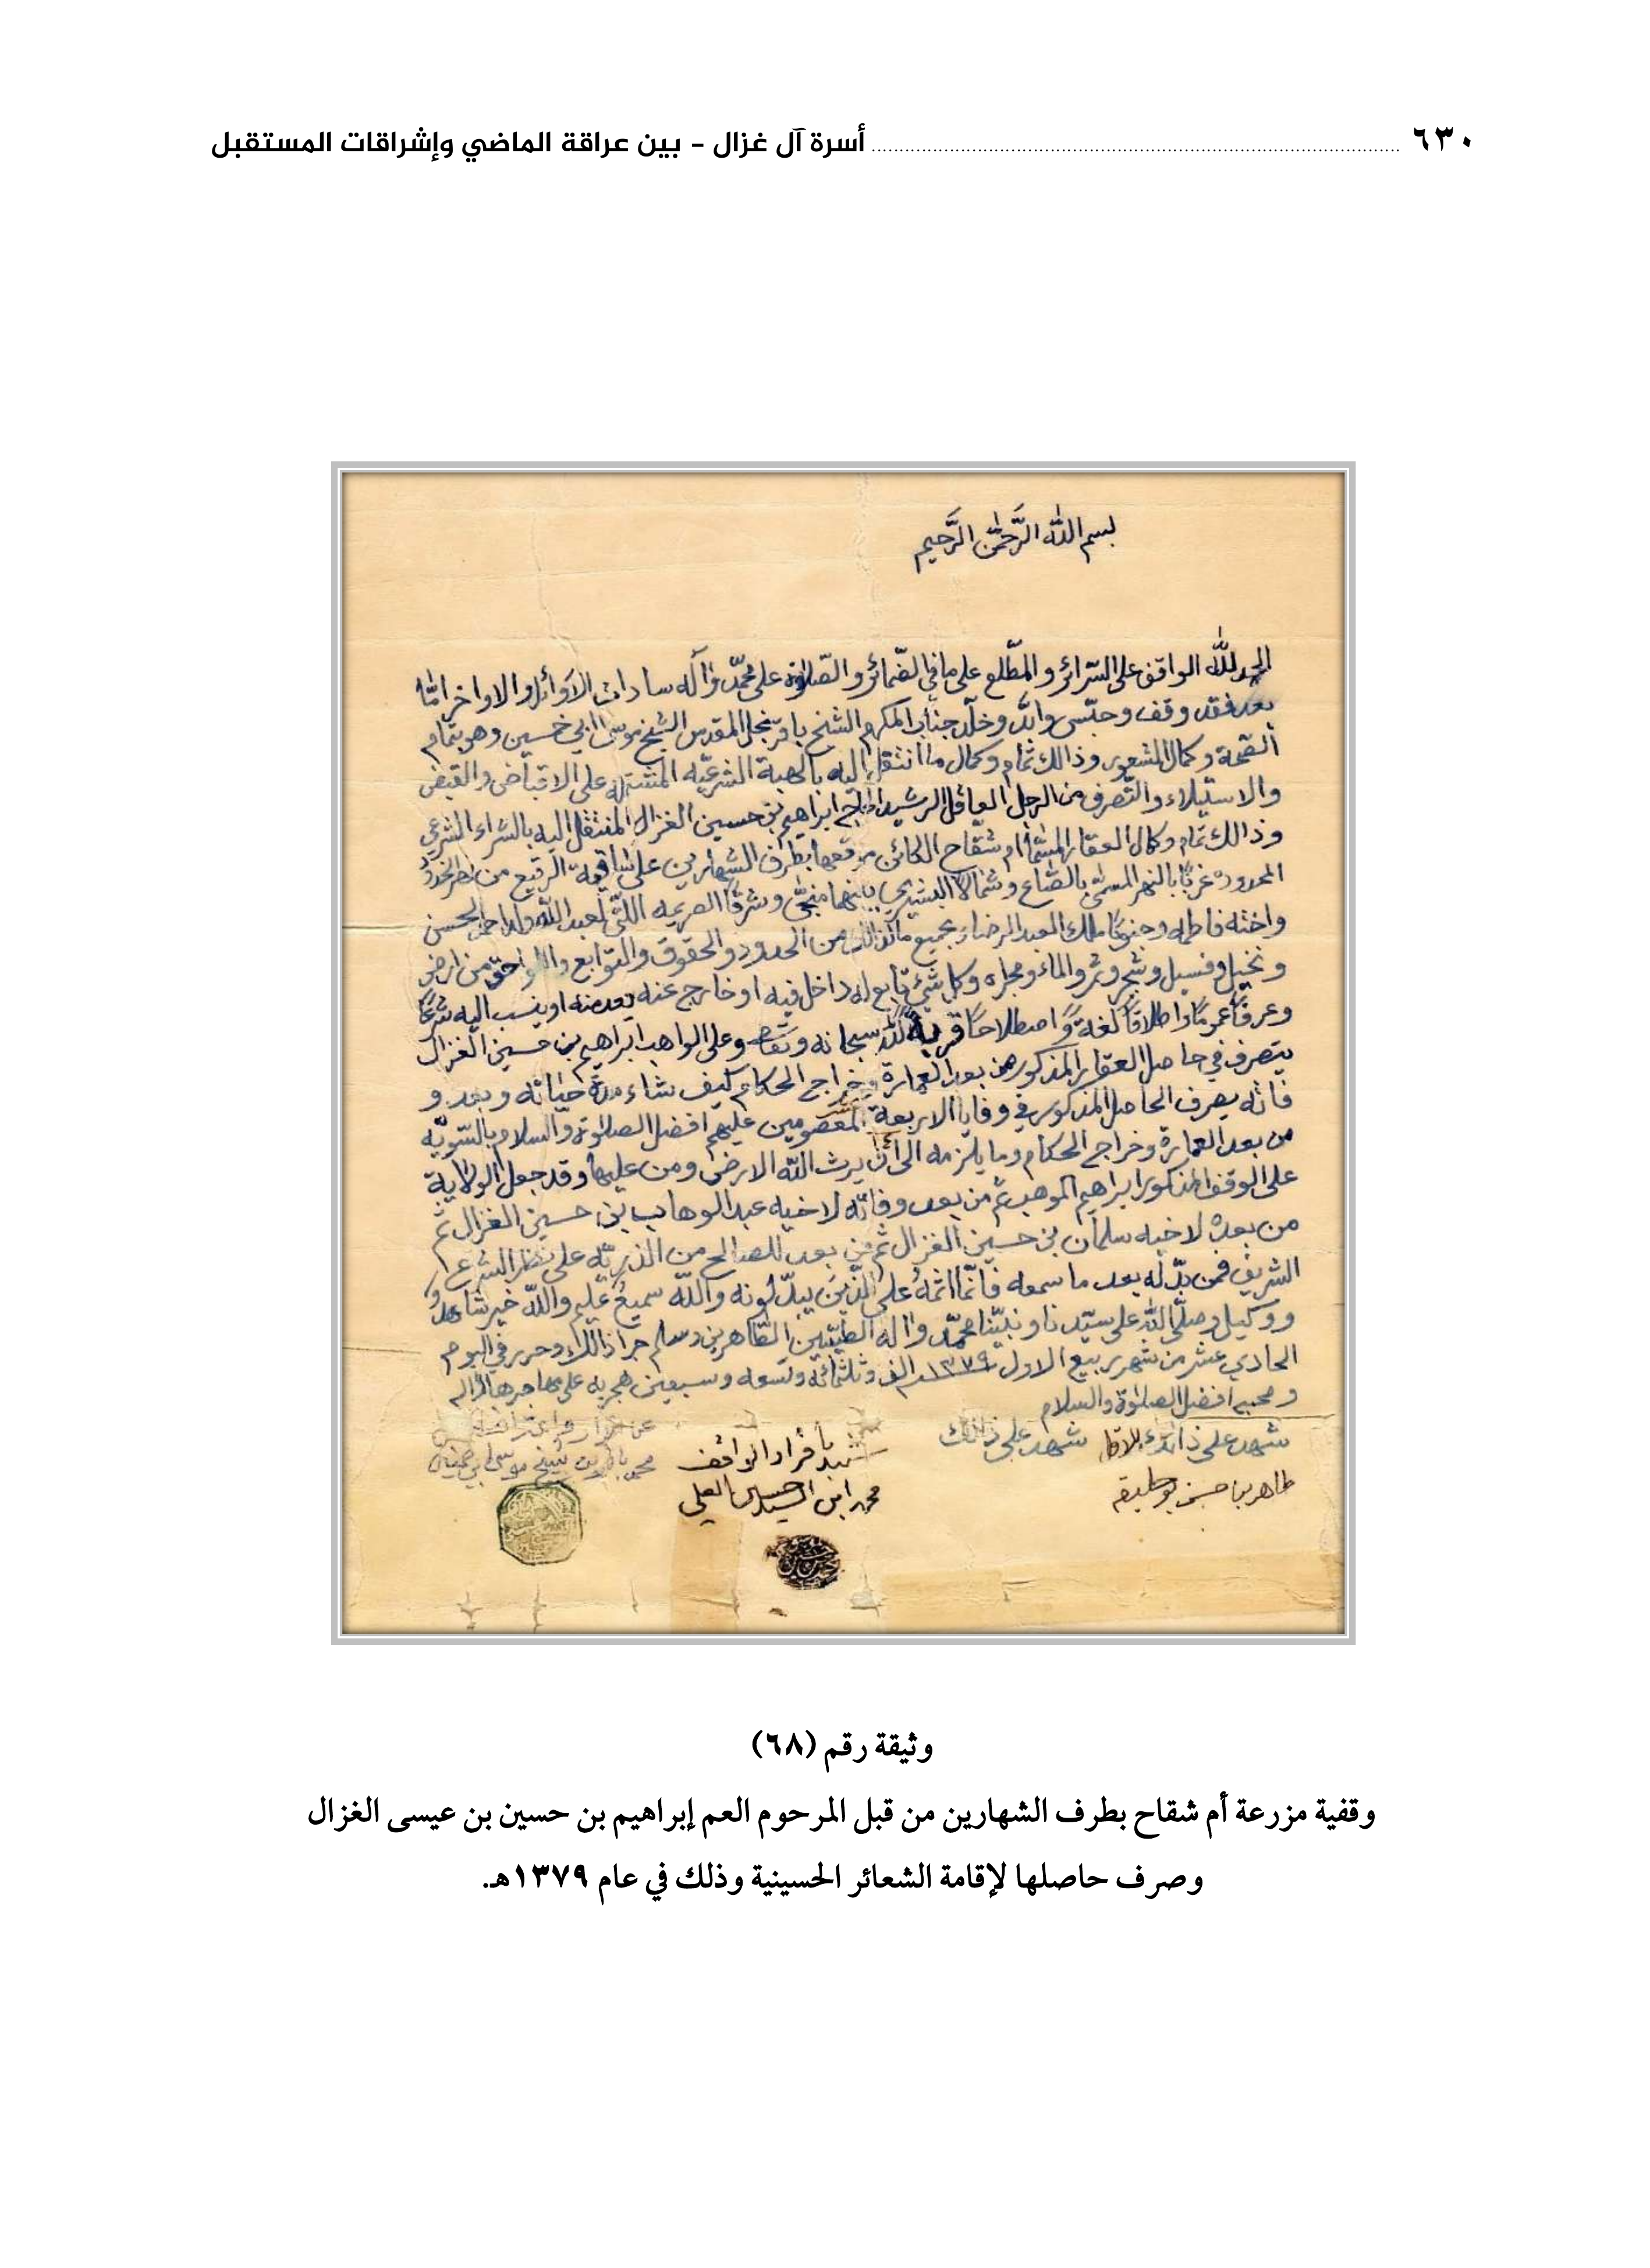 ٦٣٠ أسرة آل غزال - بين عراقة الماضي وإشراقات المستقبل
بسم الله الرَّحمٰن الرَّحيم
الحمد لله الواقف على السّرائر والمطّلع على ما في الضّمائر والصّلاوة على محمّد وآله سادات الاوائل والاواخر امّا
بعد فقد وقف وحبّس وابّد وخلّد جناب المكرم الشيخ باقر نجل المقدس الشيخ موسى ابي خمسين وهو بتمام
الصّحة وكمال الشعور وذالك تمام وكمال ما انتقل اليه بالهبة الشرعيّه المشتمله على الاقباض والقبض
والاستيلاء والتّصرف من الرجل العاقل الرشيد الحاج ابراهيم بن حسين الغزال المنتقل اليه بالشراء الشرعي
وذالك تمام وكمال العقار المسّما ام شقّاح الكائن موقعها بطرف الشهارين على ساقية الرقيع من نهر الخدود
المحدود غربًا بالنهر المسمّى بالصّاع وشمالا البشيري بينهما منجّى وشرقًا الصريمه اللتي لعبد الله ولد احمد الحسن
واخته فاطمه وجنوبًا ملك العبد الرضاء بجميع ما لذالك من الحدود والحقوق والتوابع واللواحق من ارض
ونخيل وفسيل وشجر وثمر والماء ومجراه وكل شيّ تابع له داخل فيه او خارج عنه يعد منه او ينسب اليه شرعًا
وعرفًا عمومًا واطلاقًا لغةً واصطلاحًا قربة لله سبحانه وتعالى وعلى الواهب ابراهيم بن حسين الغزال
يتصرف في حاصل العقار المذكور من بعد العمارة وخراج الحكام كيف شاء مدة حياته وبعد و
فاته يصرف الحاصل المذكور في وفايا الاربعة المعصومين عليهم افضل الصلاوة والسلام بالسّويّه
من بعد العمارة وخراج الحكام وما يلزمه الى أن يرث الله الارض ومن عليها وقد جعل الولاية
على الوقف المذكور ابراهيم الموهب ثم من بعد وفاته لاخيه عبد الوهاب بن حسين الغزال ثم
من بعده لاخيه سلمان بن حسين الغزال ثم من بعد للصالح من الذريّه على نظر الشرع
الشريف فمن بدّله بعد ما سمعه فانّما اثمه على الّذين يبدّلونه والله سميع عليم والله خير شاهد
ووكيل وصلّى الله على سيّدنا ونبيّنا محمّد واله الطيّبين الطّاهرين وسلم جرا ذالك وحرر في اليوم
الحادي عشر من شهر ربيع الاول ١٣٧٩ الف وثلثمائة وتسعه وسبعين هجريه على مهاجرها واله
ومحبيه افضل الصلوة والسلام
شهد على ذالك الاقل شهد على ذالك
طاهر بن حسن بوحليقه
شهد باقرار الواقف
محمد ابن السيد حسين العلي
محمد باقر بن الشيخ موسى ابي خمسين
وثيقة رقم (٦٨)
وقفية مزرعة أم شقاح بطرف الشهارين من قبل المرحوم العم إبراهيم بن حسين بن عيسى الغزال
وصرف حاصلها لإقامة الشعائر الحسينية وذلك في عام ١٣٧٩هـ.